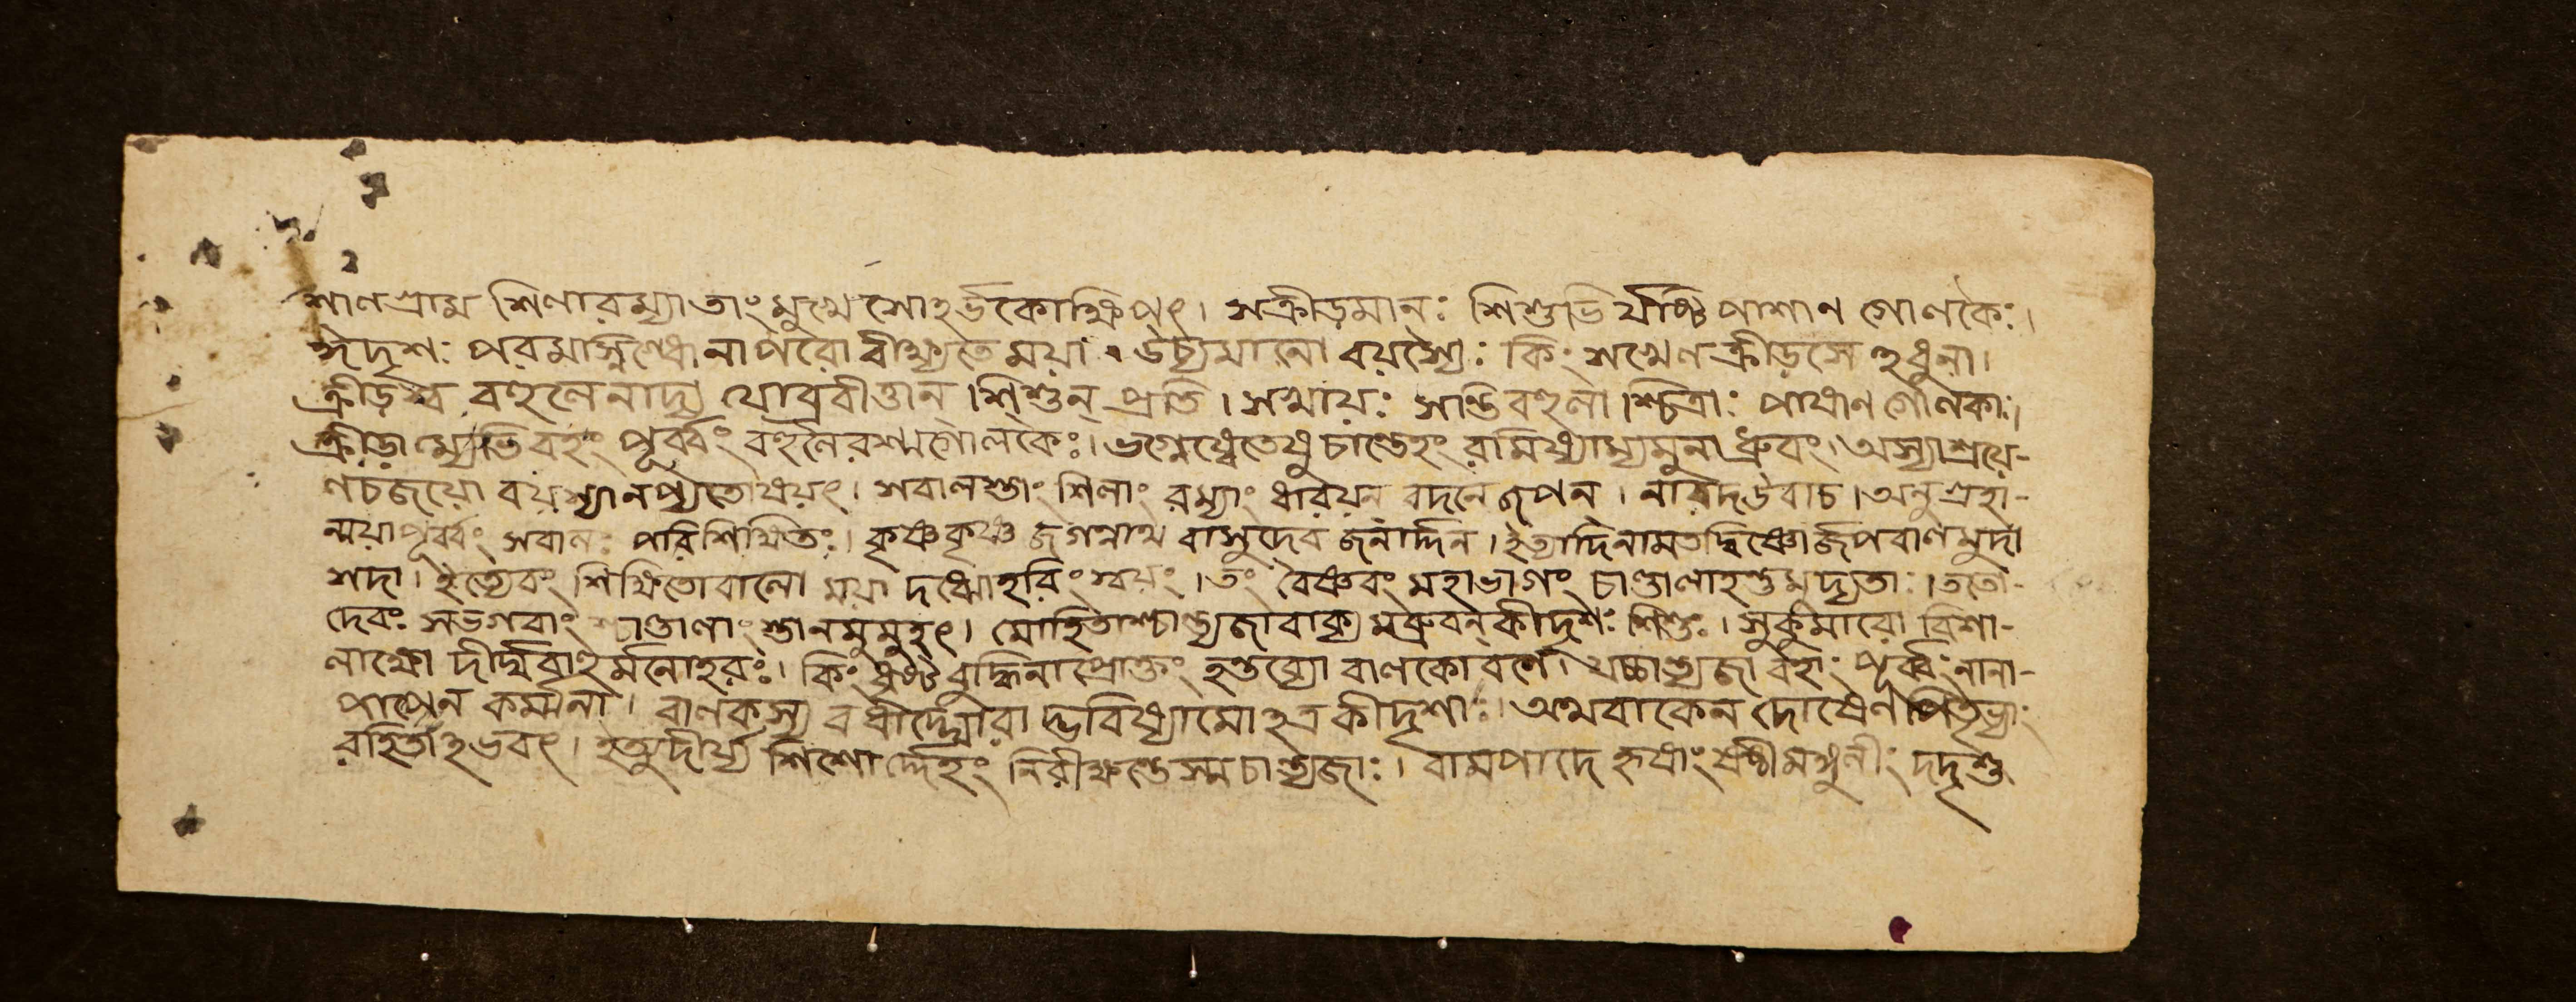 শালগ্রাম শিলারম্যাতাং মুখে সোহর্ভকোক্ষিপৎ। সক্রীড়মানঃ শিশুভি র্যষ্টি পাশান গোলকৈঃ।
ঈদৃশঃ পরমাস্নিগ্ধো নাপরো বীক্ষ্যতে ময়া। উচ্যমানো বয়স্যৈঃ কিং শখেণ ক্রীড়সে হধুনা।
ক্রীড়স্ব বহুলেনাদ্য যোব্রবীত্তান্ শিশুন্ প্রতি। সখায়ঃ সান্তি বহুলা শ্চিত্রাঃ পাষাণ গোলকাঃ।
ক্রীড়াম্যেভি বহং পূর্ব্বং বহুলৈরশ্মগোলকৈঃ। ভগ্নেষ্বেতেষু চান্তেহং রমিষ্যাম্যমুনা ধ্রুবং। অস্যাশ্রয়ে-
ণ চ জয়ো বয়স্যানপ্যতো ষয়ং। সবালস্তাং শিলাং রম্যাং ধারয়ন্ বদনে জপন্। নারদ উবাচ। অনুগ্রহা-
ন্ময়া পূর্ব্বং সবালঃ পরিশিক্ষিতঃ। কৃষ্ণ কৃষ্ণ জগন্নাথ বাসুদেব জনার্দ্দন। ইত্যাদিনামতদ্বিষ্ণো র্জপবালমুদা
সদা। ইত্যেবং শিক্ষিতোবালো ময়া দধ্মোহরিং স্বয়ং। তং বৈষ্ণবং মহাভাগং চাণ্ডালাহন্তুমুদ্যতাঃ। ততো-
দেবঃ সভগবাং শ্চাণ্ডালাং স্তানমুমুহৎ। মোহিতাশ্চান্ত্যজাবাক্য মব্রুবন্ কীদৃশঃ শিশুঃ। সুকুমারো বিশা-
লাক্ষো দীর্ঘবাহুর্মনোহরঃ। কিং ধৃষ্টবুদ্ধিনাপ্রোক্তং হন্তব্যো বালকো বলে। যচ্চান্ত্যজা বহাং পূর্ব্বং নানা-
পাপেন কর্ম্মনা। বালকস্য বধাদ্ঘোরা দ্ভবিষ্যামো হত্র কীদৃশাঃ। অথবাকেন দোষেণ পিতৃভ্যাং
রহিতা হভবৎ। ইত্যুদীর্য্য শিশোর্দ্দেহং নিরীক্ষন্তেস্ম চান্ত্যজাঃ। বামপাদে হ্যষাং ষষ্ঠীমঙ্গুলীং দদৃশু